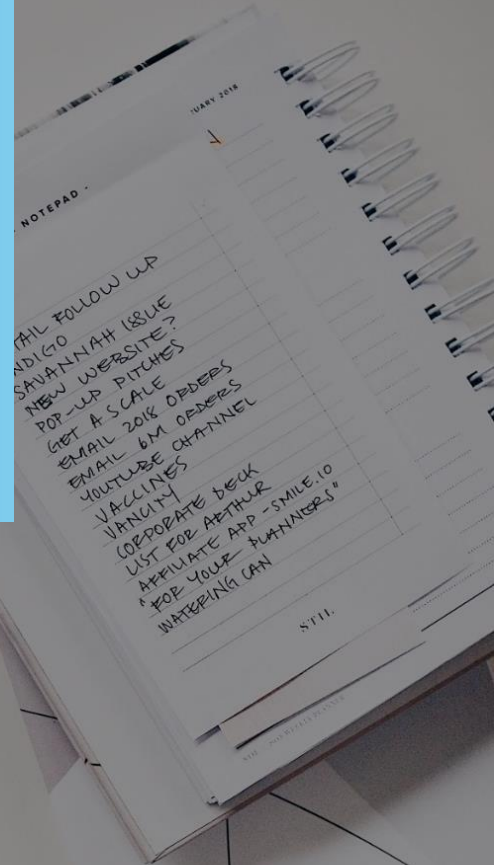 UARY 2018
NOTEPAD .
TAIL FOLLOW UP
NDIGO
SAVANNAH ISSUE
NEW WEBSITE?
POP-UP PITCHES
GET A SCALE
EMAIL 2018 ORDERS
EMAIL 6M ORDERS
YOUTUBE CHANNEL
VACCINES
VANCITY
CORPORATE DECK
LIST FOR ARTHUR
AFFILIATE APP - SMILE.IO
"FOR YOUR PLANNERS"
WATERING CAN
STIL